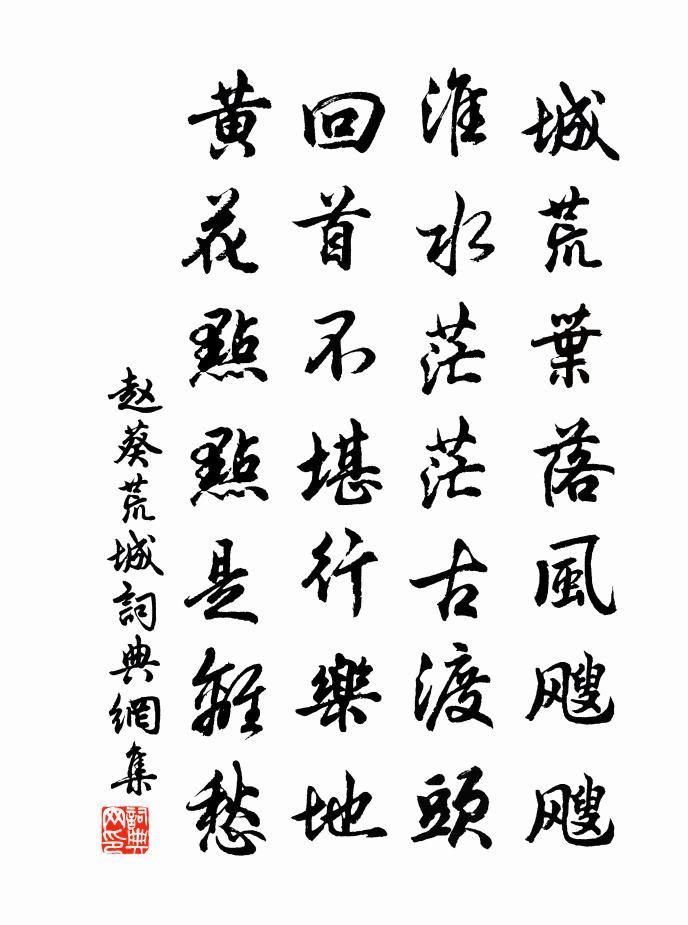 城荒葉落風颼颼
淮水茫茫古渡頭
回首不堪行樂地
黄花點點是離愁
赵葵荒城詞典網集
詞典网印